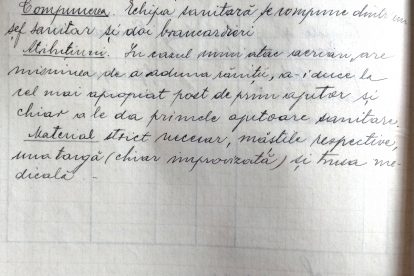 Compunerea. Echipa sanitară se compune dintr'un
șef sanitar și doi brancardieri
Atribuțiuni. În cazul unui atac aerian, are
misiunea de a aduna răniții, a-i duce la
cel mai apropiat post de prim ajutor și
chiar a le da primele ajutoare sanitare.
Material strict necesar, măștile respective,
una targă (chiar improvizată) și trusa me-
dicală